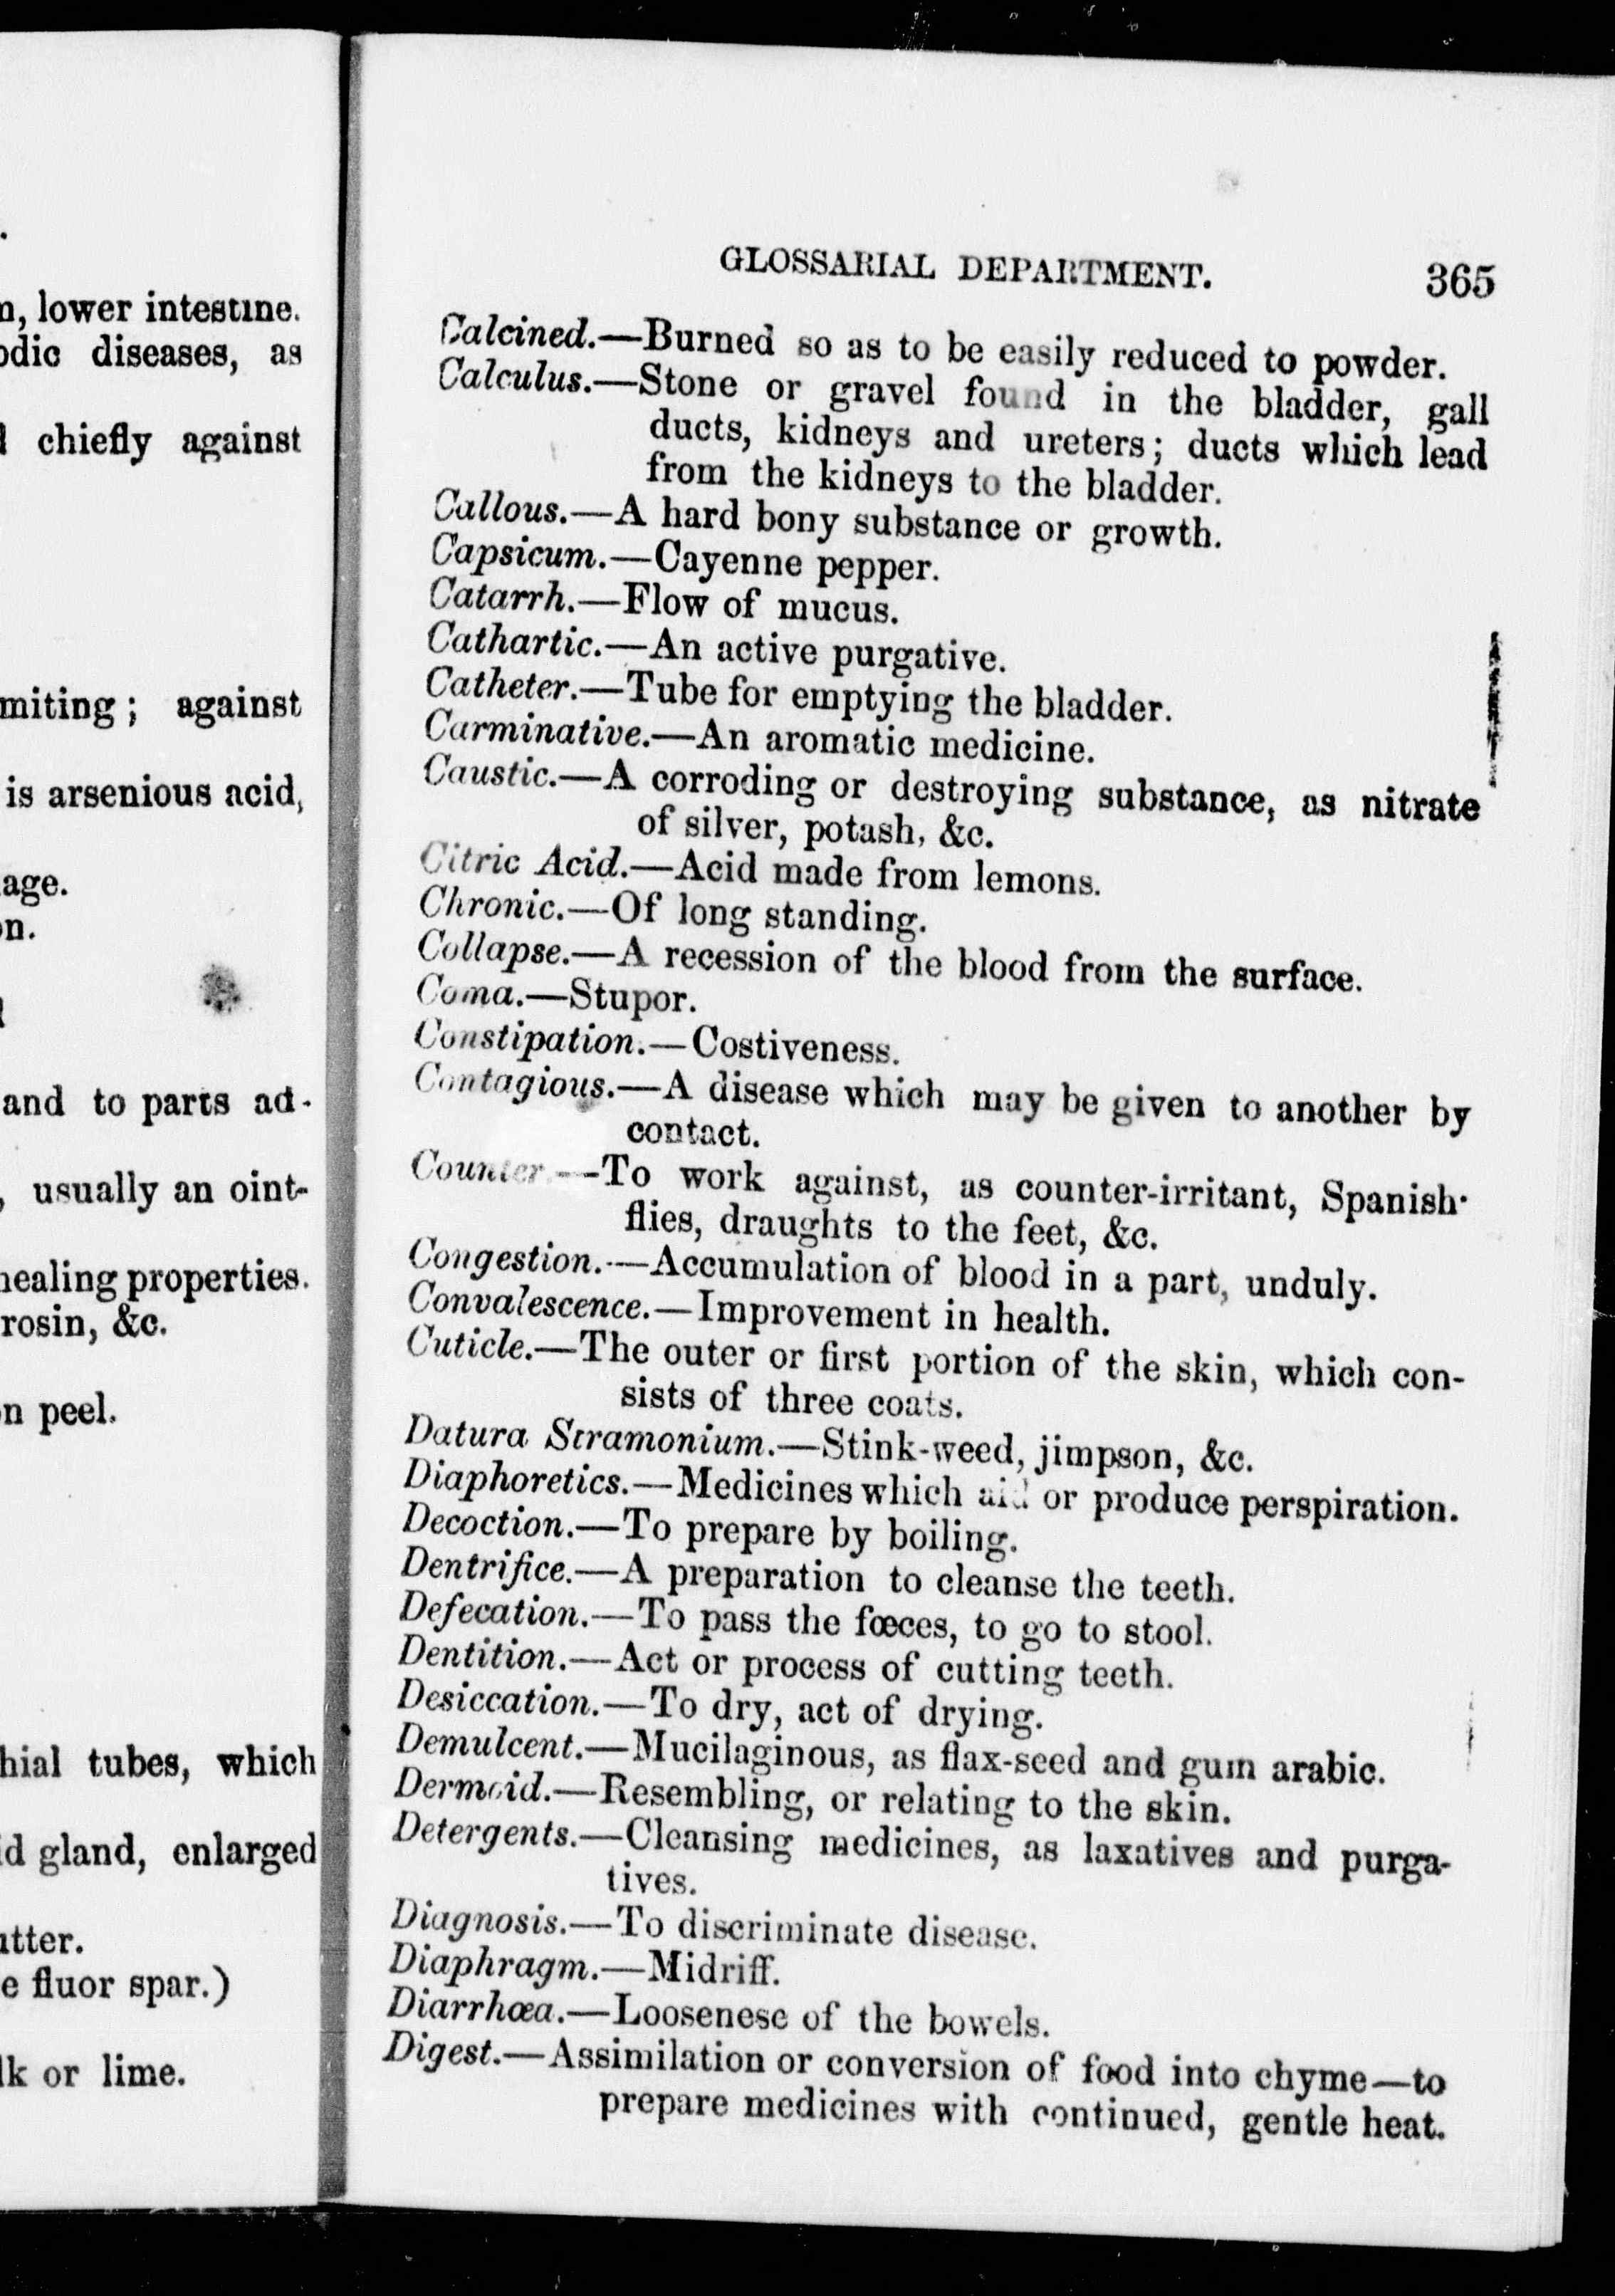 n, lower intestine.
odic diseases, as
chiefly against
miting; against
is arsenious acid,
age.
on.
and to parts ad-
, usually an oint-
healing properties.
rosin, &c.
n peel.
hial tubes, which
id gland, enlarged
utter.
e fluor spar.)
lk or lime.
GLOSSARIAL DEPARTMENT. 365
Calcined.—Burned so as to be easily reduced to powder.
Calculus.—Stone or gravel found in the bladder, gall
ducts, kidneys and ureters; ducts which lead
from the kidneys to the bladder.
Callous.—A hard bony substance or growth.
Capsicum.—Cayenne pepper.
Catarrh.—Flow of mucus.
Cathartic.—An active purgative.
Catheter.—Tube for emptying the bladder.
Carminative.—An aromatic medicine.
Caustic.—A corroding or destroying substance, as nitrate
of silver, potash, &c.
Citric Acid.—Acid made from lemons.
Chronic.—Of long standing.
Collapse.—A recession of the blood from the surface.
Coma.—Stupor.
Constipation.—Costiveness.
Contagious.—A disease which may be given to another by
contact.
Counter.—To work against, as counter-irritant, Spanish-
flies, draughts to the feet, &c.
Congestion.—Accumulation of blood in a part, unduly.
Convalescence.—Improvement in health.
Cuticle.—The outer or first portion of the skin, which con-
sists of three coats.
Datura Stramonium.—Stink-weed, jimpson, &c.
Diaphoretics.—Medicines which aid or produce perspiration.
Decoction.—To prepare by boiling.
Dentrifice.—A preparation to cleanse the teeth.
Defecation.—To pass the fœces, to go to stool.
Dentition.—Act or process of cutting teeth.
Desiccation.—To dry, act of drying.
Demulcent.—Mucilaginous, as flax-seed and gum arabic.
Dermoid.—Resembling, or relating to the skin.
Detergents.—Cleansing medicines, as laxatives and purga-
tives.
Diagnosis.—To discriminate disease.
Diaphragm.—Midriff.
Diarrhœa.—Loosenese of the bowels.
Digest.—Assimilation or conversion of food into chyme—to
prepare medicines with continued, gentle heat.